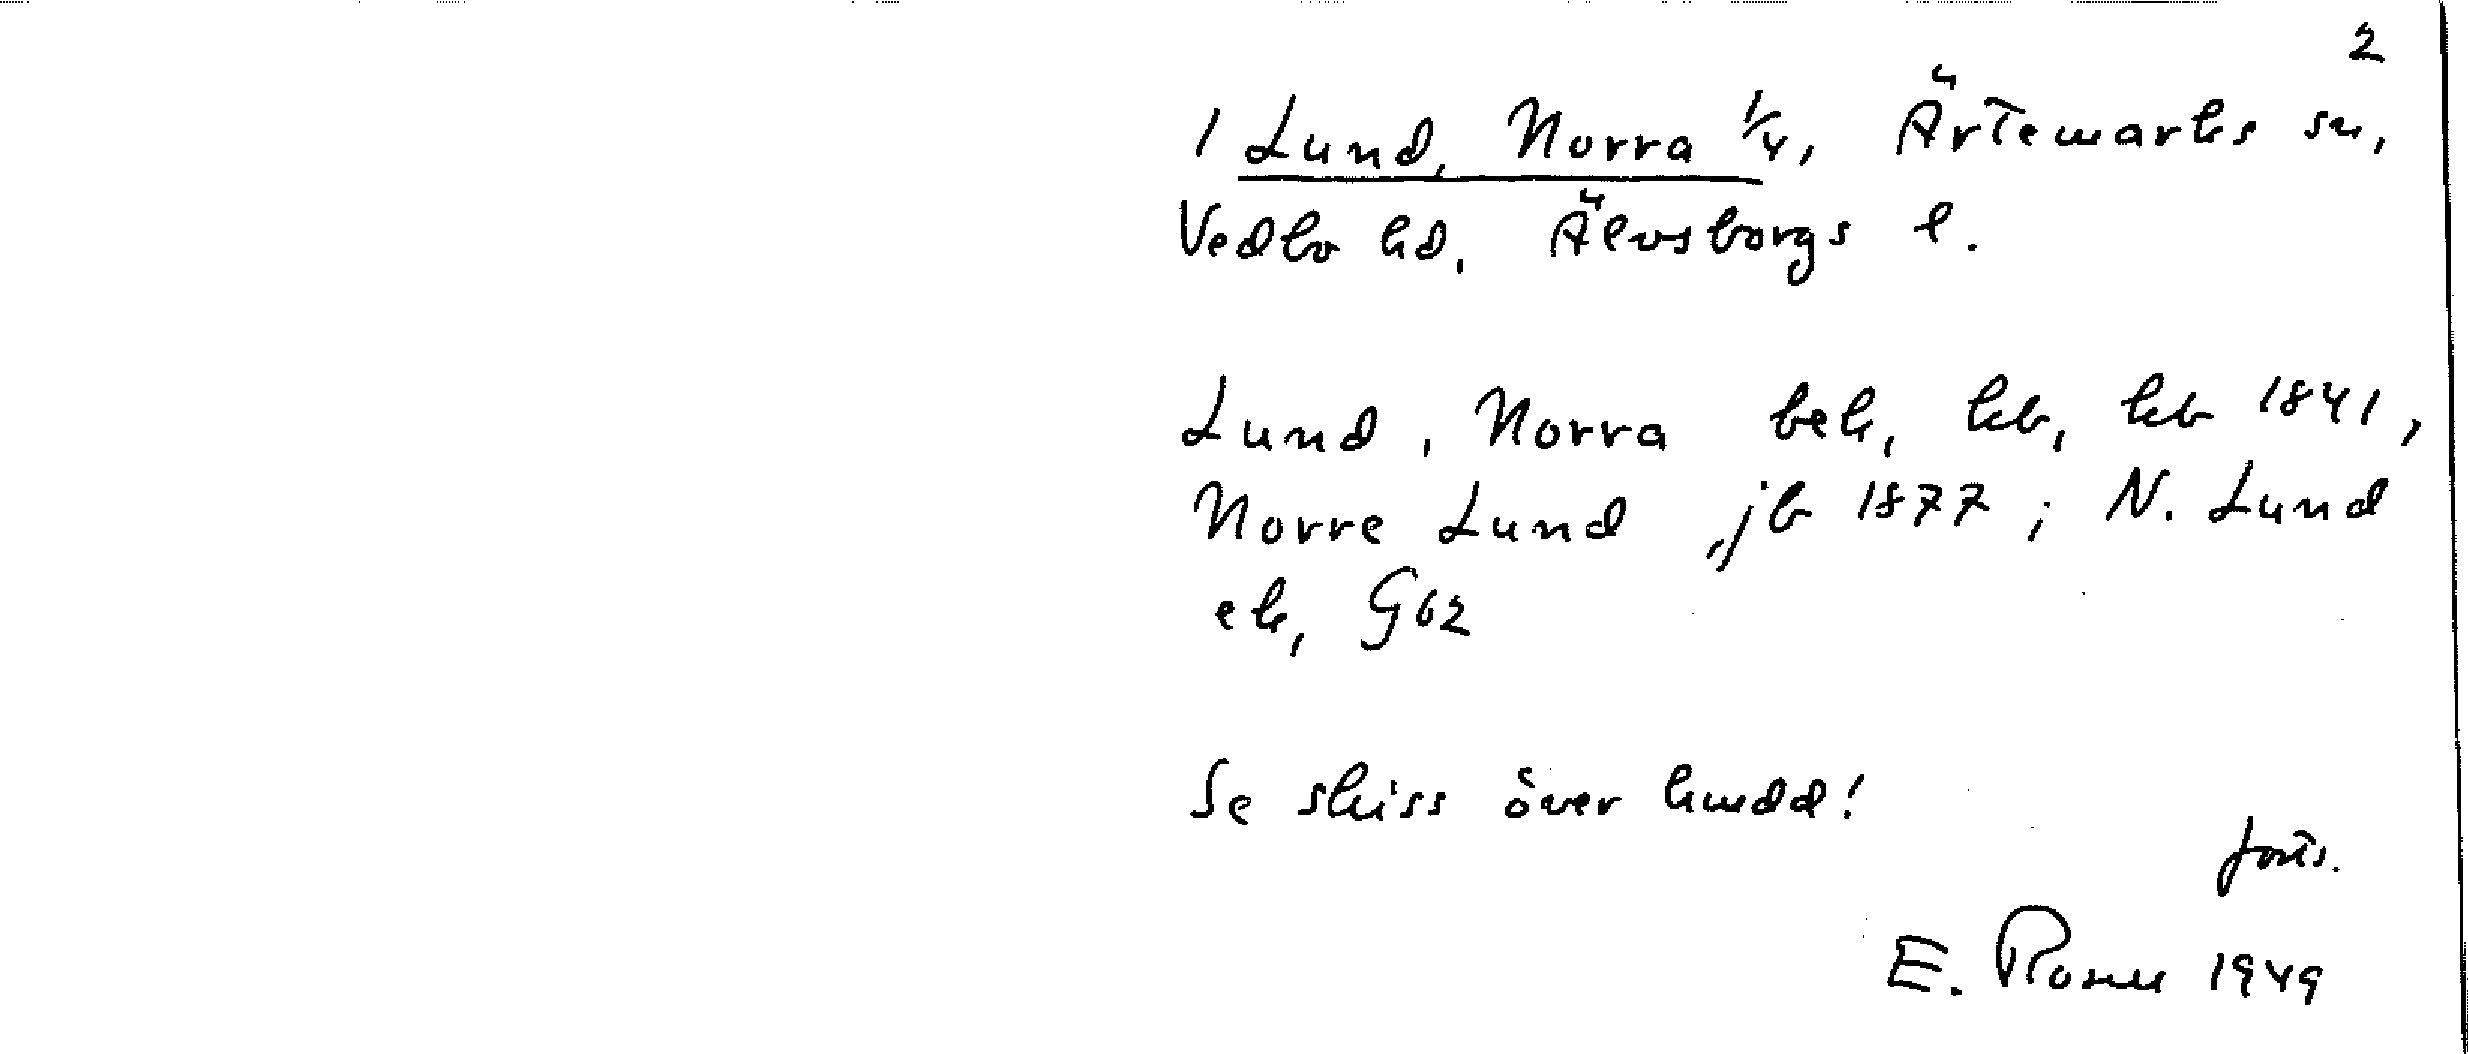 2
1 Lund, Norra 1/4, Ärtemarks sn,
Vedbo hd, Älvsborgs l.
Lund, Norra bek, kb, kb 1841,
Norre Lund, jb 1877; N. Lund
ek, G62
Se skiss över hmdd!
forts.
E. Rosell 1949